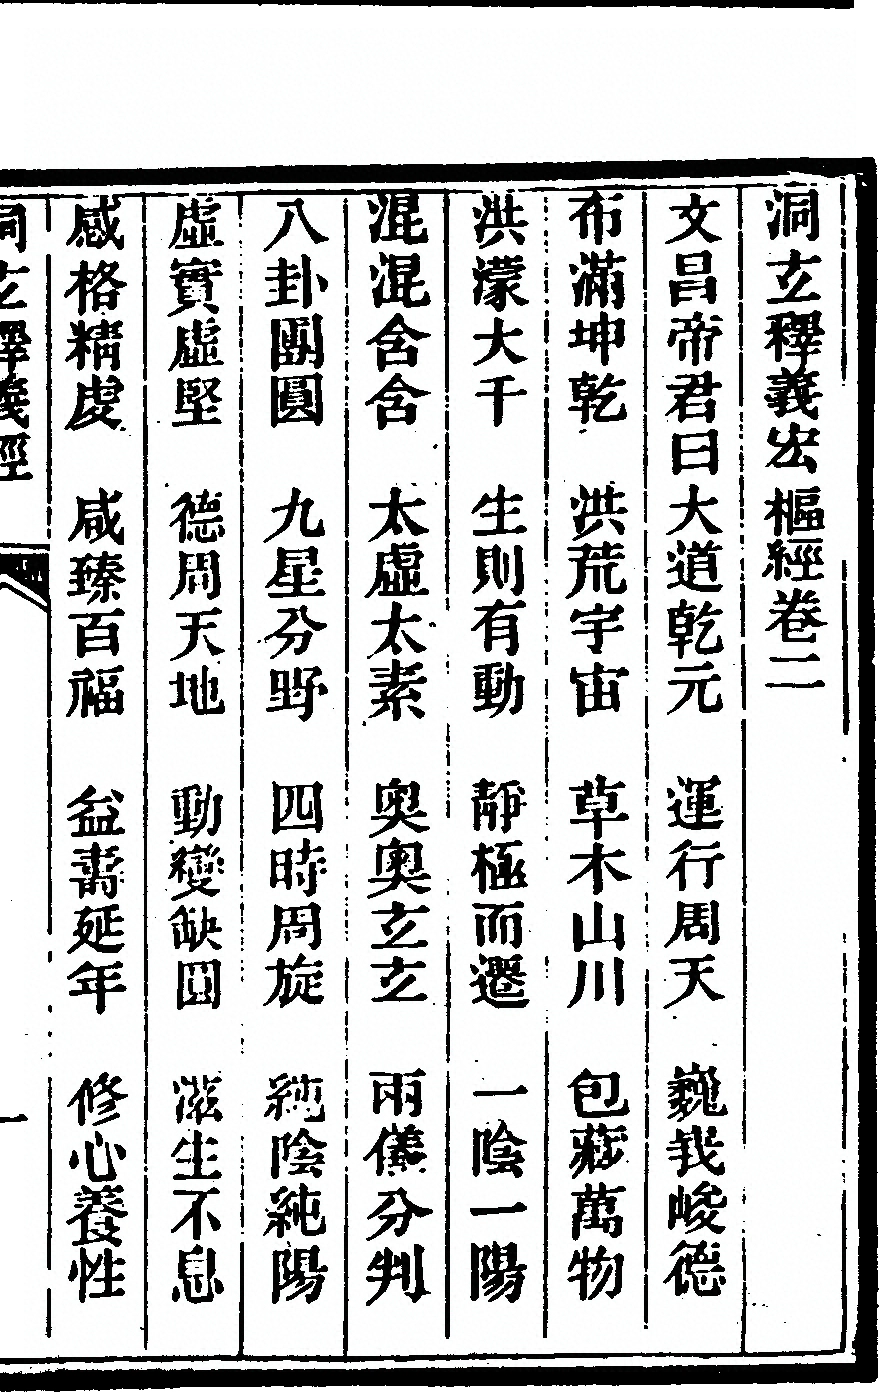 洞玄釋義宏樞經卷二
文昌帝君曰大道乾元 運行周天 巍峩峻德
布滿坤乾 洪荒宇宙 草木山川 包藏萬物
洪濛大千 生則有動 靜極而遷 一陰一陽
混混含含 太虛太素 奥奥玄玄 兩儀分判
八卦團圓 九星分野 四時周旋 純陰純陽
虛實虛堅 德周天地 動變缺圓 滋生不息
感格精虔 咸臻百福 益壽延年 修心養性
洞玄釋義經 一